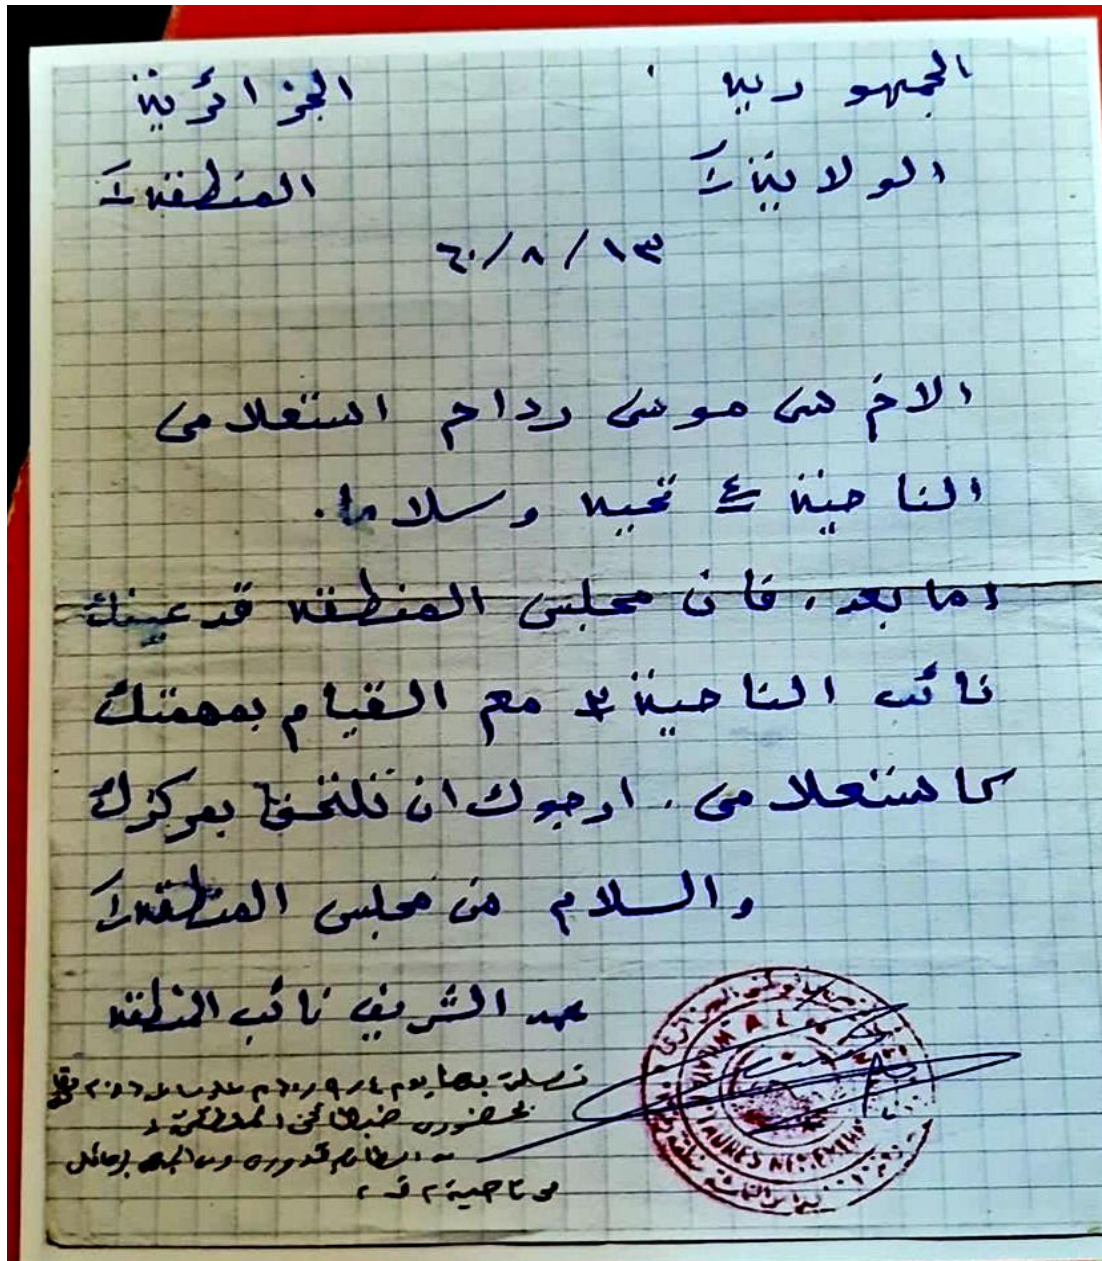 الجمهورية الجزائرية
الولاية ١ المنطقة ١
٦٠/٨/١٣
الاخ سي موسى رداح استعلامي
الناحية ٤ تحية وسلاما.
اما بعد، فان مجلس المنطقة قد عينك
نائب الناحية ٣ مع القيام بمهمتك
كاستعلامي. ارجوك ان تلتحق بمركزك
والسلام من مجلس المنطقة ١
محمد الشريف نائب المنطقة
بحضور
ناحية ٢
A.L.N
AURES NEMEMCHA